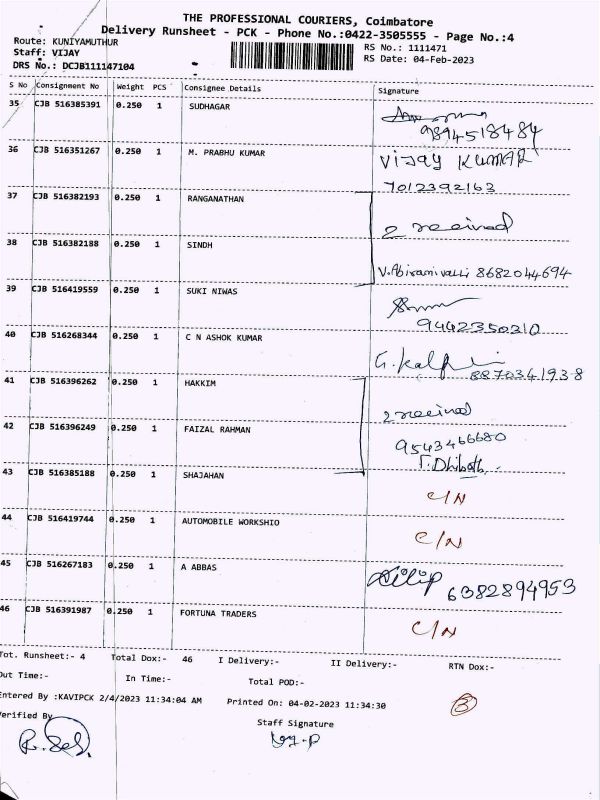 THE PROFESSIONAL COURIERS, Coimbatore
Delivery Runsheet - PCK - Phone No.:0422-3505555 - Page No.:4
Route: KUNIYAMUTHUR
RS No.: 1111471
Staff: VIJAY
RS Date: 04-Feb-2023
DRS No.: DCJB111147104
S No Consignment No Weight PCS Consignee Details Signature
35 CJB 516385391 0.250 1 SUDHAGAR
9894518484
36 CJB 516351267 0.250 1 M. PRABHU KUMAR VIJAY KUMAR
7012392163
37 CJB 516382193 0.250 1 RANGANATHAN
2 received
38 CJB 516382188 0.250 1 SINDH
V.Abiramivalli 8682044694
39 CJB 516419559 0.250 1 SUKI NIWAS
9442350310
40 CJB 516268344 0.250 1 C N ASHOK KUMAR
8870341938
41 CJB 516396262 0.250 1 HAKKIM
2 received
42 CJB 516396249 0.250 1 FAIZAL RAHMAN
9543466680
43 CJB 516385188 0.250 1 SHAJAHAN
C/N
44 CJB 516419744 0.250 1 AUTOMOBILE WORKSHIO
C/N
45 CJB 516267183 0.250 1 A ABBAS
Dilip 6382894953
46 CJB 516391987 0.250 1 FORTUNA TRADERS
C/N
Tot. Runsheet:- 4 Total Dox:- 46 I Delivery:- II Delivery:- RTN Dox:-
Out Time:- In Time:- Total POD:-
Entered By :KAVIPCK 2/4/2023 11:34:04 AM Printed On: 04-02-2023 11:34:30
3
Verified By
Staff Signature